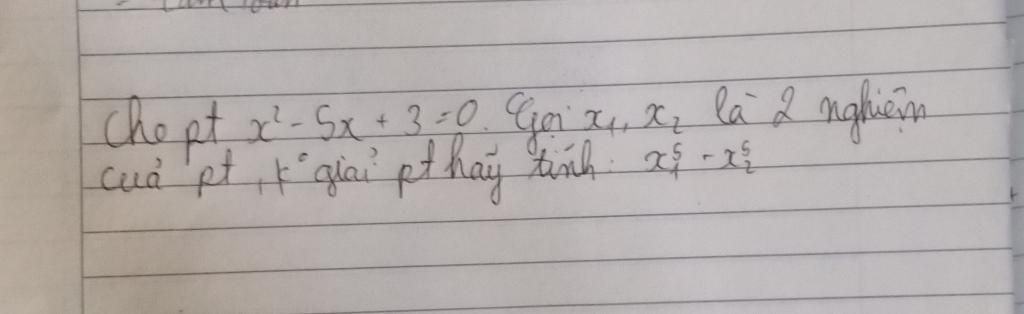 Cho pt x² - 5x + 3 = 0. Gọi x₁, x₂ là 2 nghiệm
của pt, k° giải pt hãy tính: x₁⁵ - x₂⁵